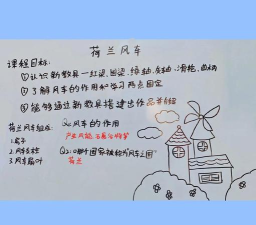 荷兰风车
课程目标:
①认识新教具—红梁、蓝梁、绿轴、灰轴、滑轮、曲柄
②了解风车的作用和学习两点固定
③能够通过新教具搭建出作品并介绍
荷兰风车组成:
1.房子
2.风车支柱
3.风车扇叶
Q1:风车的作用
产生风能
Q2:哪个国家被称为"风车之国"
荷兰